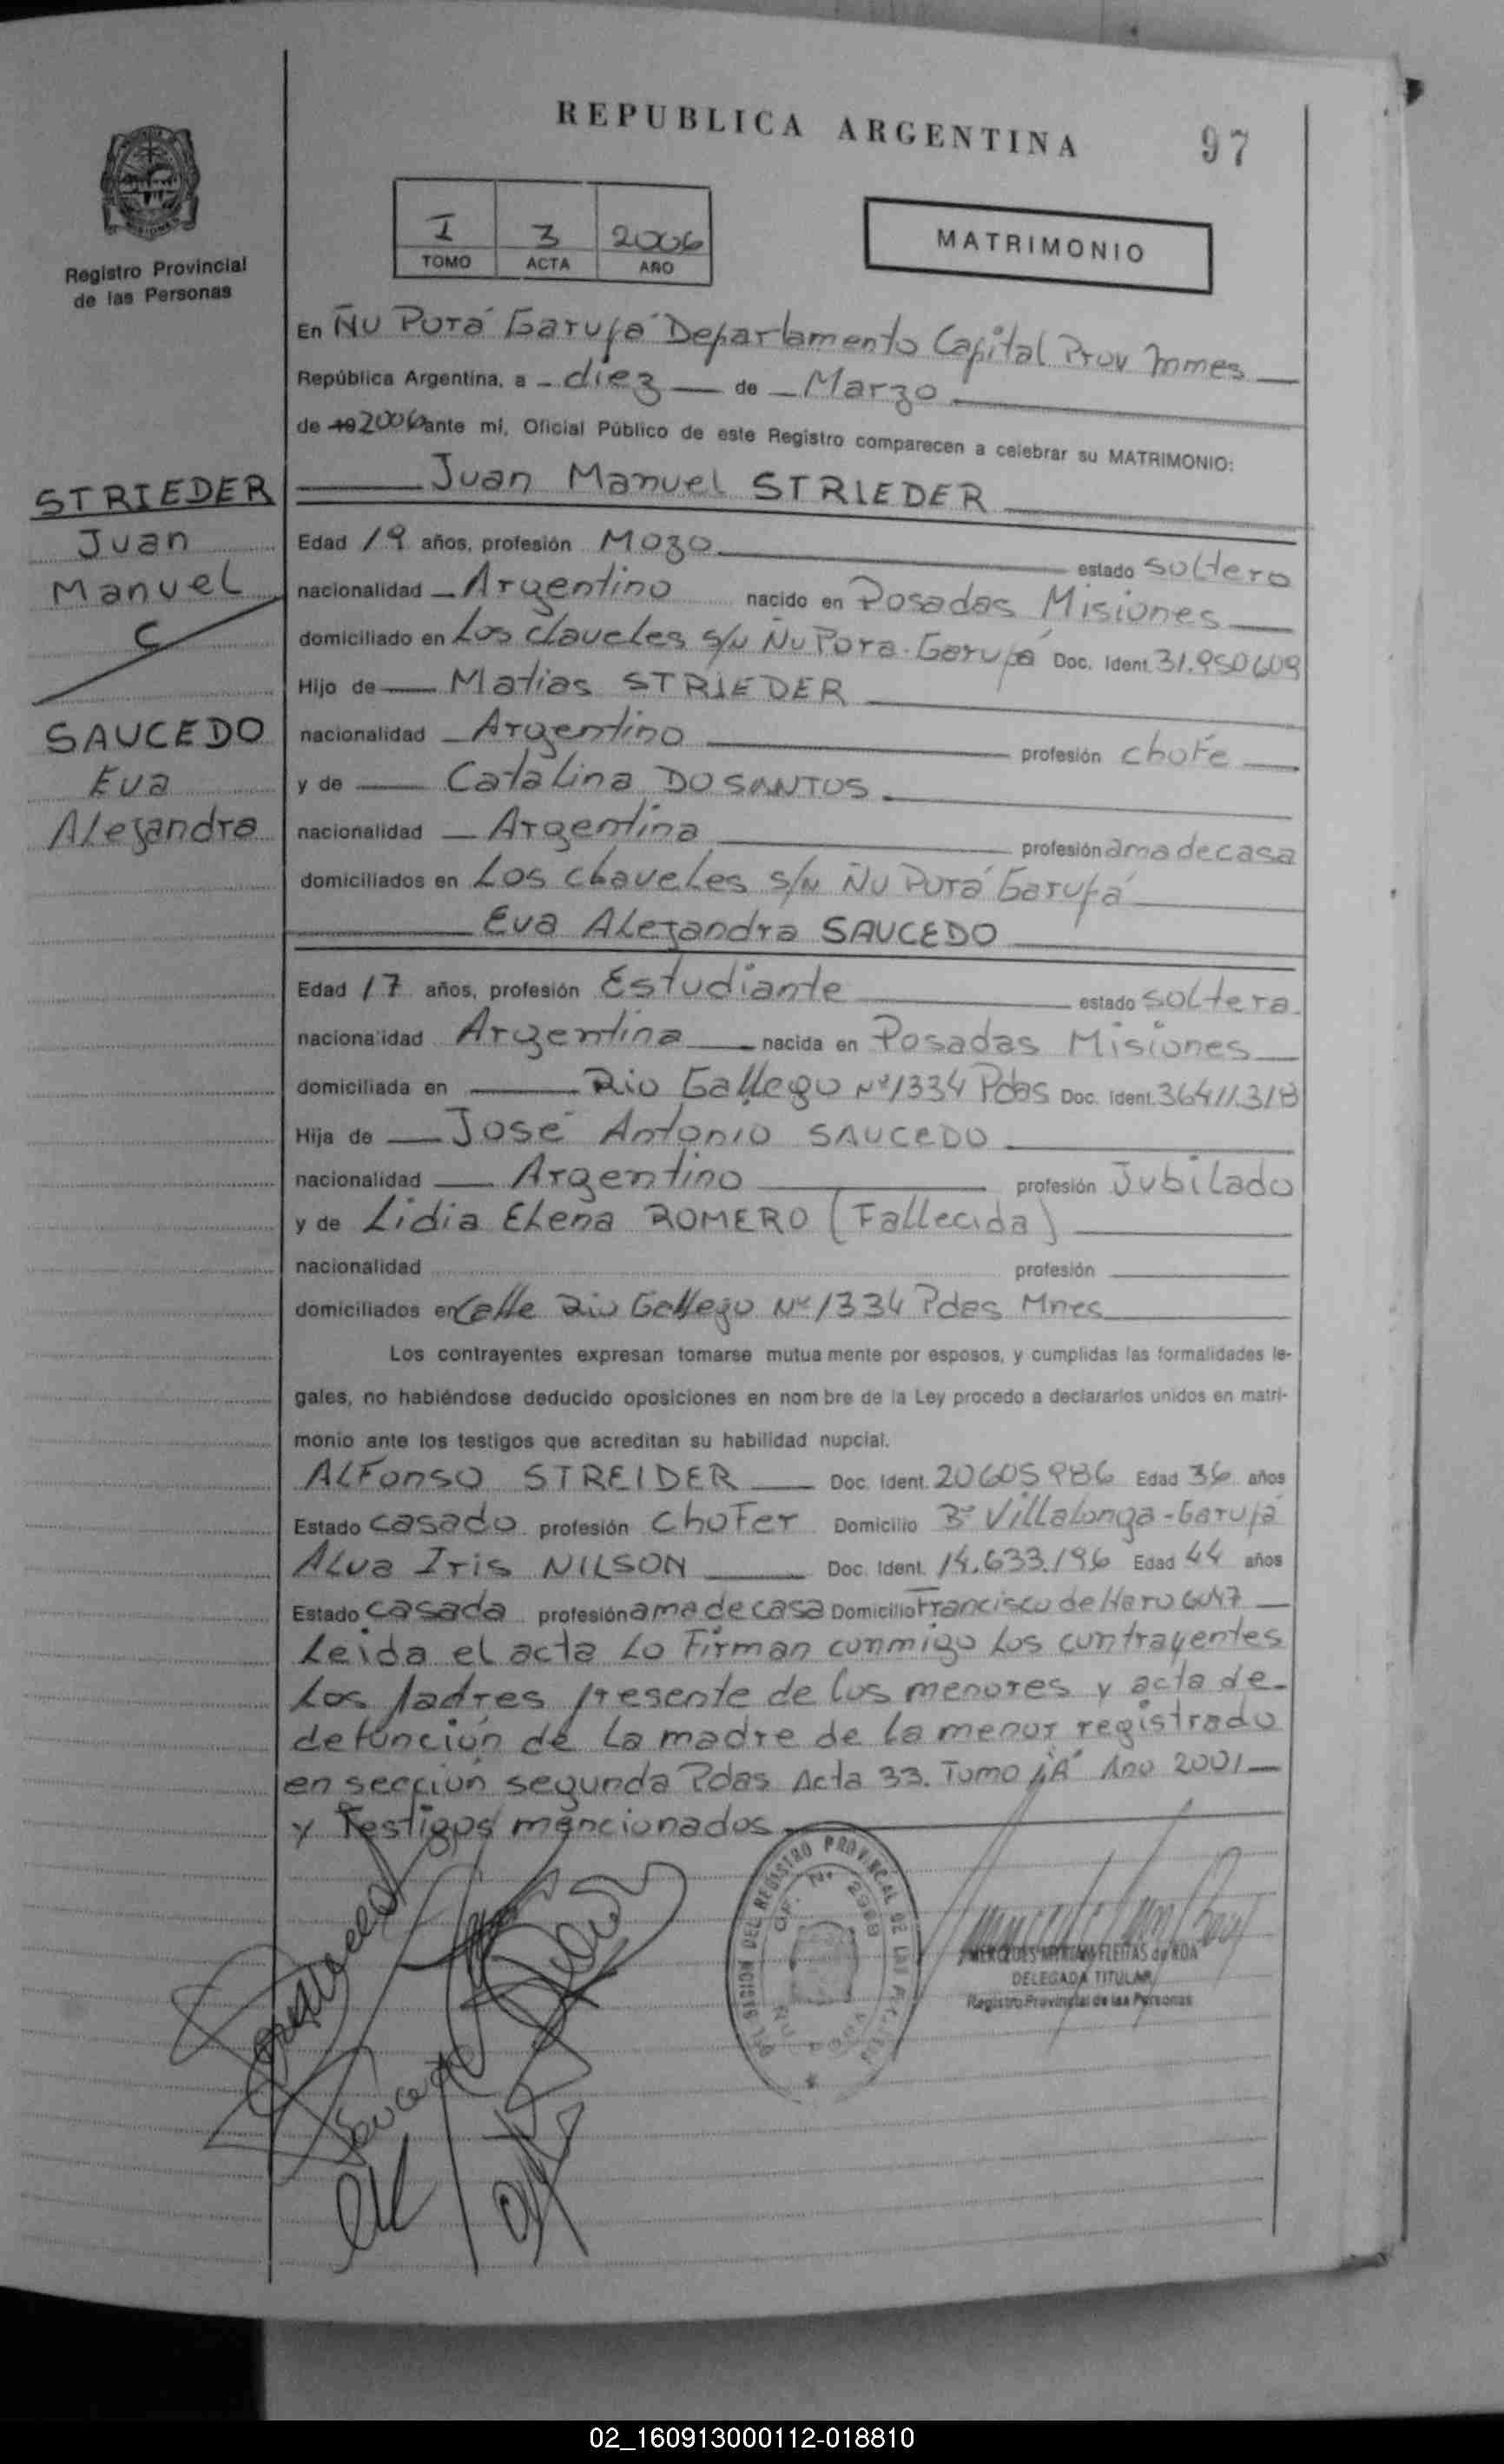 REPUBLICA ARGENTINA
97
Registro Provincial
de las Personas
I 3 2006
TOMO ACTA AÑO
MATRIMONIO
En Ñu Porá Garupá Departamento Capital Prov Mnes
República Argentina, a diez de Marzo
de 19 2006 ante mí, Oficial Público de este Registro comparecen a celebrar su MATRIMONIO:
Juan Manuel STRIEDER
STRIEDER
Juan
Manuel
C
SAUCEDO
Eva
Alejandra
Edad 19 años, profesión Mozo estado soltero
nacionalidad Argentino nacido en Posadas Misiones
domiciliado en Los claveles s/n Ñu Pora-Garupá Doc. Ident. 31.950609
Hijo de Matias STRIEDER
nacionalidad Argentino profesión chofe
y de Catalina DO SANTOS
nacionalidad Argentina profesión ama de casa
domiciliados en Los claveles s/n Ñu Porá Garupá
Eva Alejandra SAUCEDO
Edad 17 años, profesión Estudiante estado soltera
nacionalidad Argentina nacida en Posadas Misiones
domiciliada en Rio Gallego Nº 1334 Pdas Doc. Ident. 36411.318
Hija de José Antonio SAUCEDO
nacionalidad Argentino profesión Jubilado
y de Lidia Elena ROMERO (Fallecida)
nacionalidad profesión
domiciliados en Calle Rio Gallego Nº 1334 Pdas Mnes
Los contrayentes expresan tomarse mutua mente por esposos, y cumplidas las formalidades le-
gales, no habiéndose deducido oposiciones en nom bre de la Ley procedo a declararlos unidos en matri-
monio ante los testigos que acreditan su habilidad nupcial.
ALFONSO STREIDER Doc. Ident. 20605986 Edad 36 años
Estado casado profesión chofer Domicilio Bº Villalonga-Garupá
Alva Iris NILSON Doc. Ident. 14.633.196 Edad 44 años
Estado casada profesión ama de casa Domicilio Francisco de Haro 6047
Leida el acta lo Firman conmigo los contrayentes
Los padres presente de los menores y acta de-
defunción de la madre de la menor registrado
en sección segunda Pdas Acta 33. Tomo "A" Año 2001
y Testigos mencionados
Saucedo
DEL REGISTRO PROVINCIAL DE LAS
MERCEDES MYRIAM FLEITAS de RDA
DELEGADA TITULAR
Registro Provincial de las Personas
02_160913000112-018810